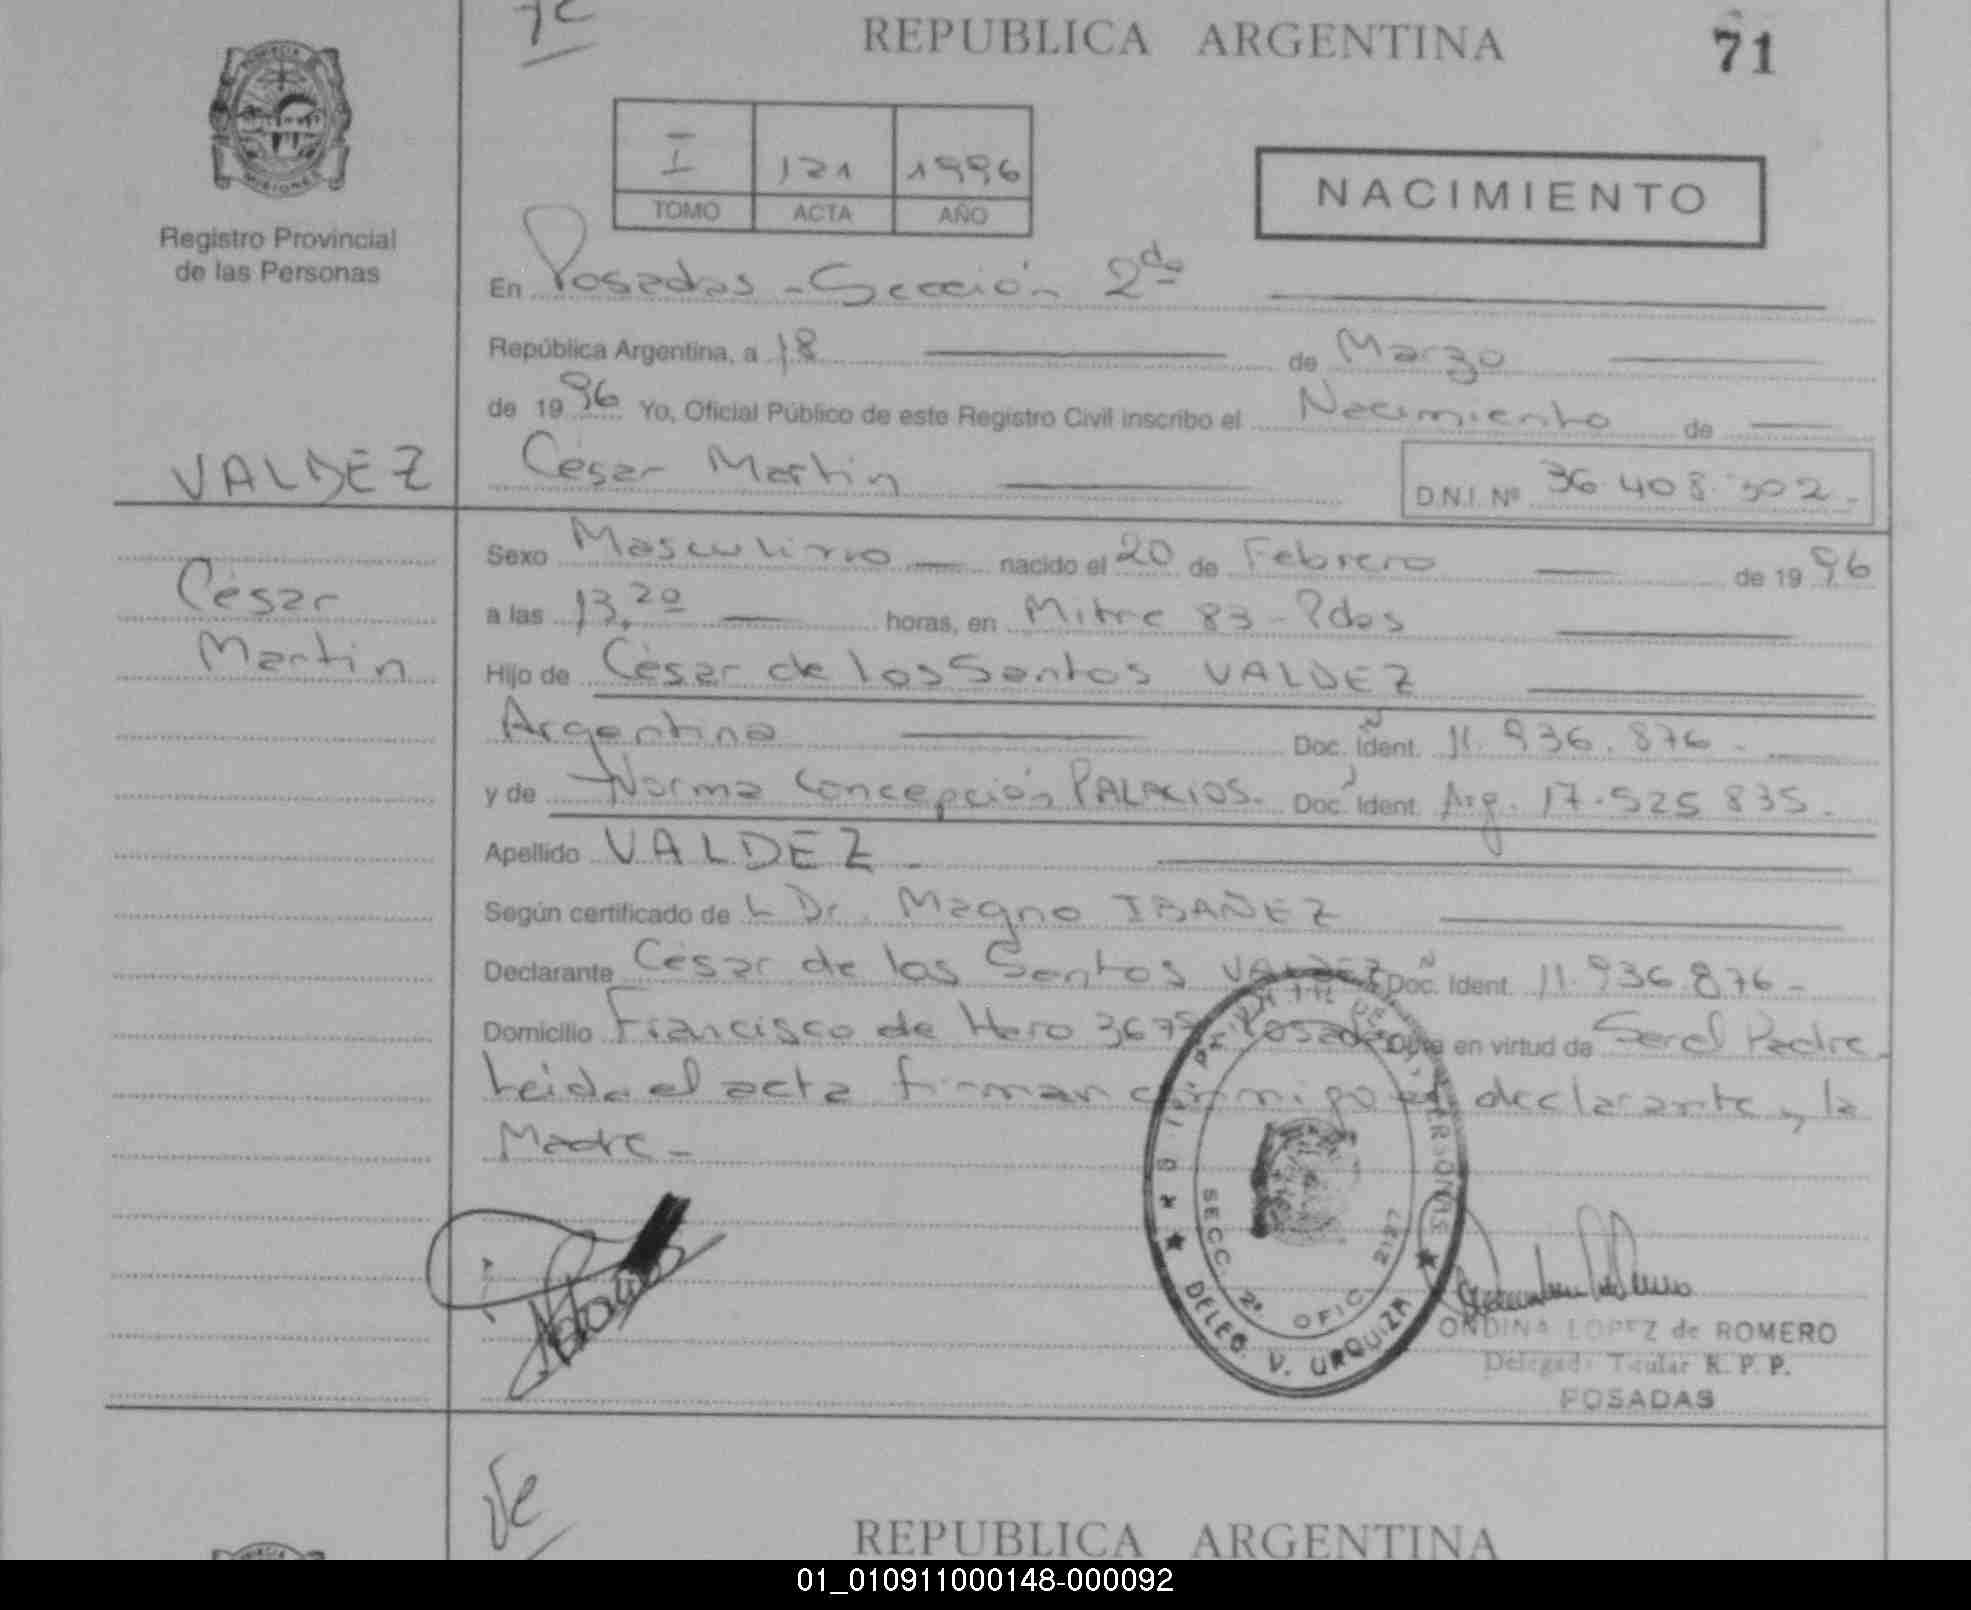 REPUBLICA ARGENTINA
71
I 121 1996
TOMO ACTA AÑO
NACIMIENTO
MISIONES
Registro Provincial
de las Personas
En Posadas - Sección 2da
República Argentina, a 18 de Marzo
de 1996 Yo, Oficial Público de este Registro Civil inscribo el Nacimiento de
VALDEZ
César Martin
D.N.I. Nº 36.408.302.-
César
Martin
Sexo Masculino nacido el 20 de Febrero de 1996
a las 13,20 horas, en Mitre 83 - Pdas
Hijo de César de los Santos VALDEZ
Argentina Doc. Ident. 11.936.876.-
y de Norma Concepción PALACIOS. Doc. Ident. Arg. 17.525 835.-
Apellido VALDEZ.-
Según certificado de L Dr. Magno IBAÑEZ
Declarante César de los Santos VALDEZ Doc. Ident. 11.936.876-
Domicilio Francisco de Haro 367 Posadas Obra en virtud de Ser el Padre.
Leida el acta firman conmigo el declarante y la
Madre-
PERSONAS
SECC. 2ª. OFIC. 2127
DELEG. V. URQUIZA
ONDINA LOPEZ de ROMERO
Delegada Titular R. P. P.
POSADAS
REPUBLICA ARGENTINA
01_010911000148-000092